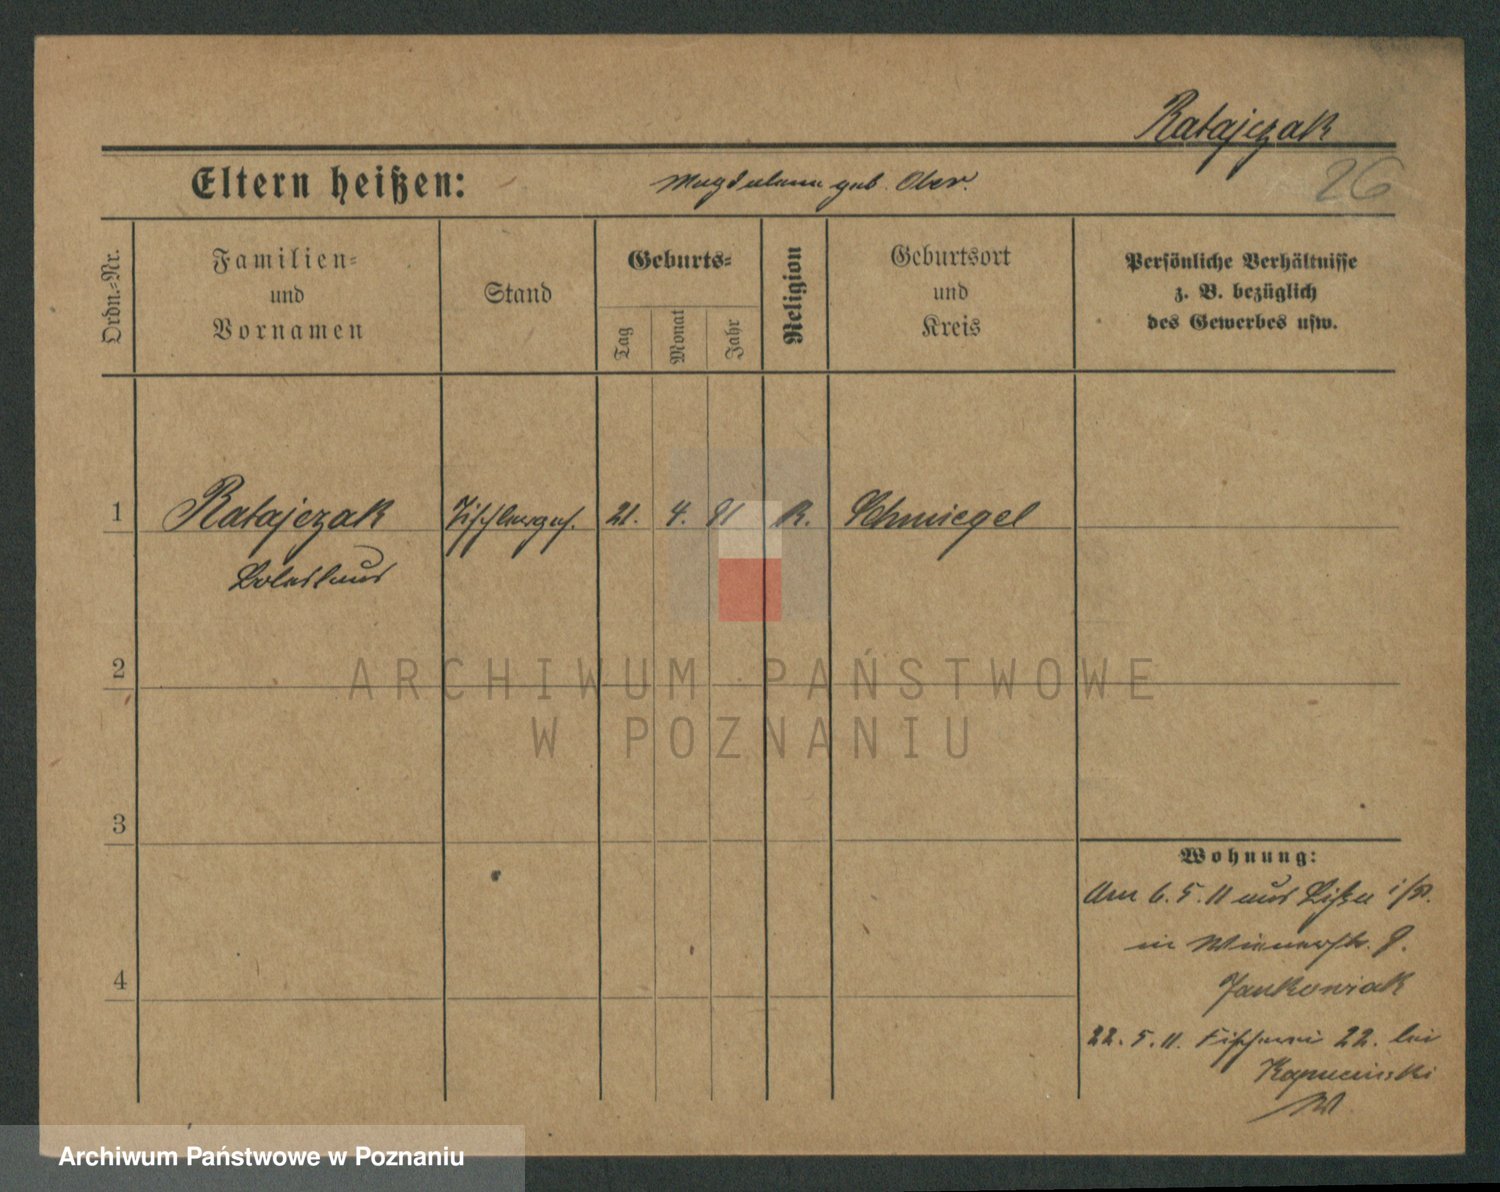 Ratajczak
26
Eltern heißen: Magdalena geb. Ober.
Ordn.-Nr.
Familien-
und
Vornamen
Stand
Geburts-
Tag
Monat
Jahr
Religion
Geburtsort
und
Kreis
Persönliche Verhältnisse
z. B. bezüglich
des Gewerbes usw.
1 Ratajczak Tischlerges. 21. 4. 81 K. Schmiegel
Boleslaus
2
3
4
Wohnung:
Am 6.5.11 aus Lissa i/P.
in Wienerstr. 8.
Jankowiak
22.5.11. Fischerei 22. bei
Kapucinski
ARCHIWUM PAŃSTWOWE
W POZNANIU
Archiwum Państwowe w Poznaniu